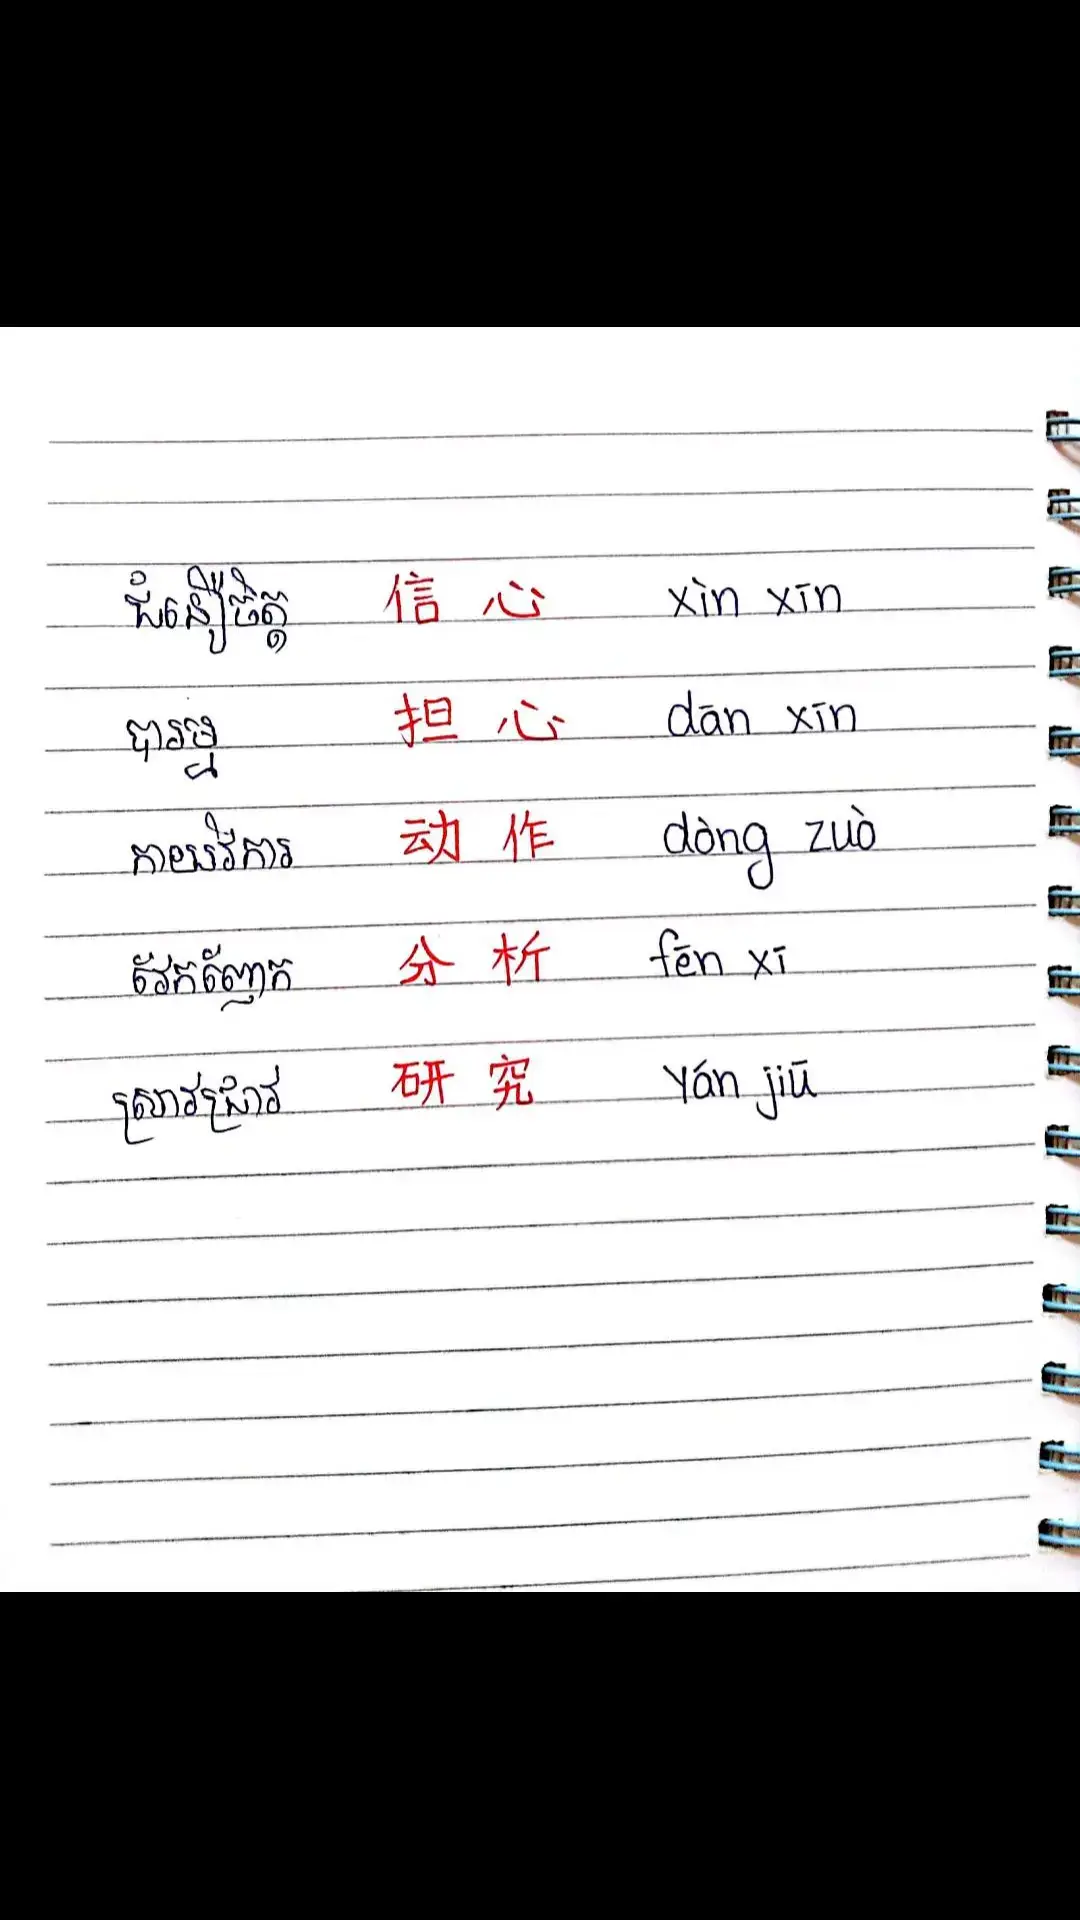 ជំនឿចិត្ត 信心 xìn xīn
បារម្ភ 担心 dān xīn
កាយវិការ 动作 dòng zuò
វែកញែក 分析 fēn xī
ស្រាវជ្រាវ 研究 yán jiū